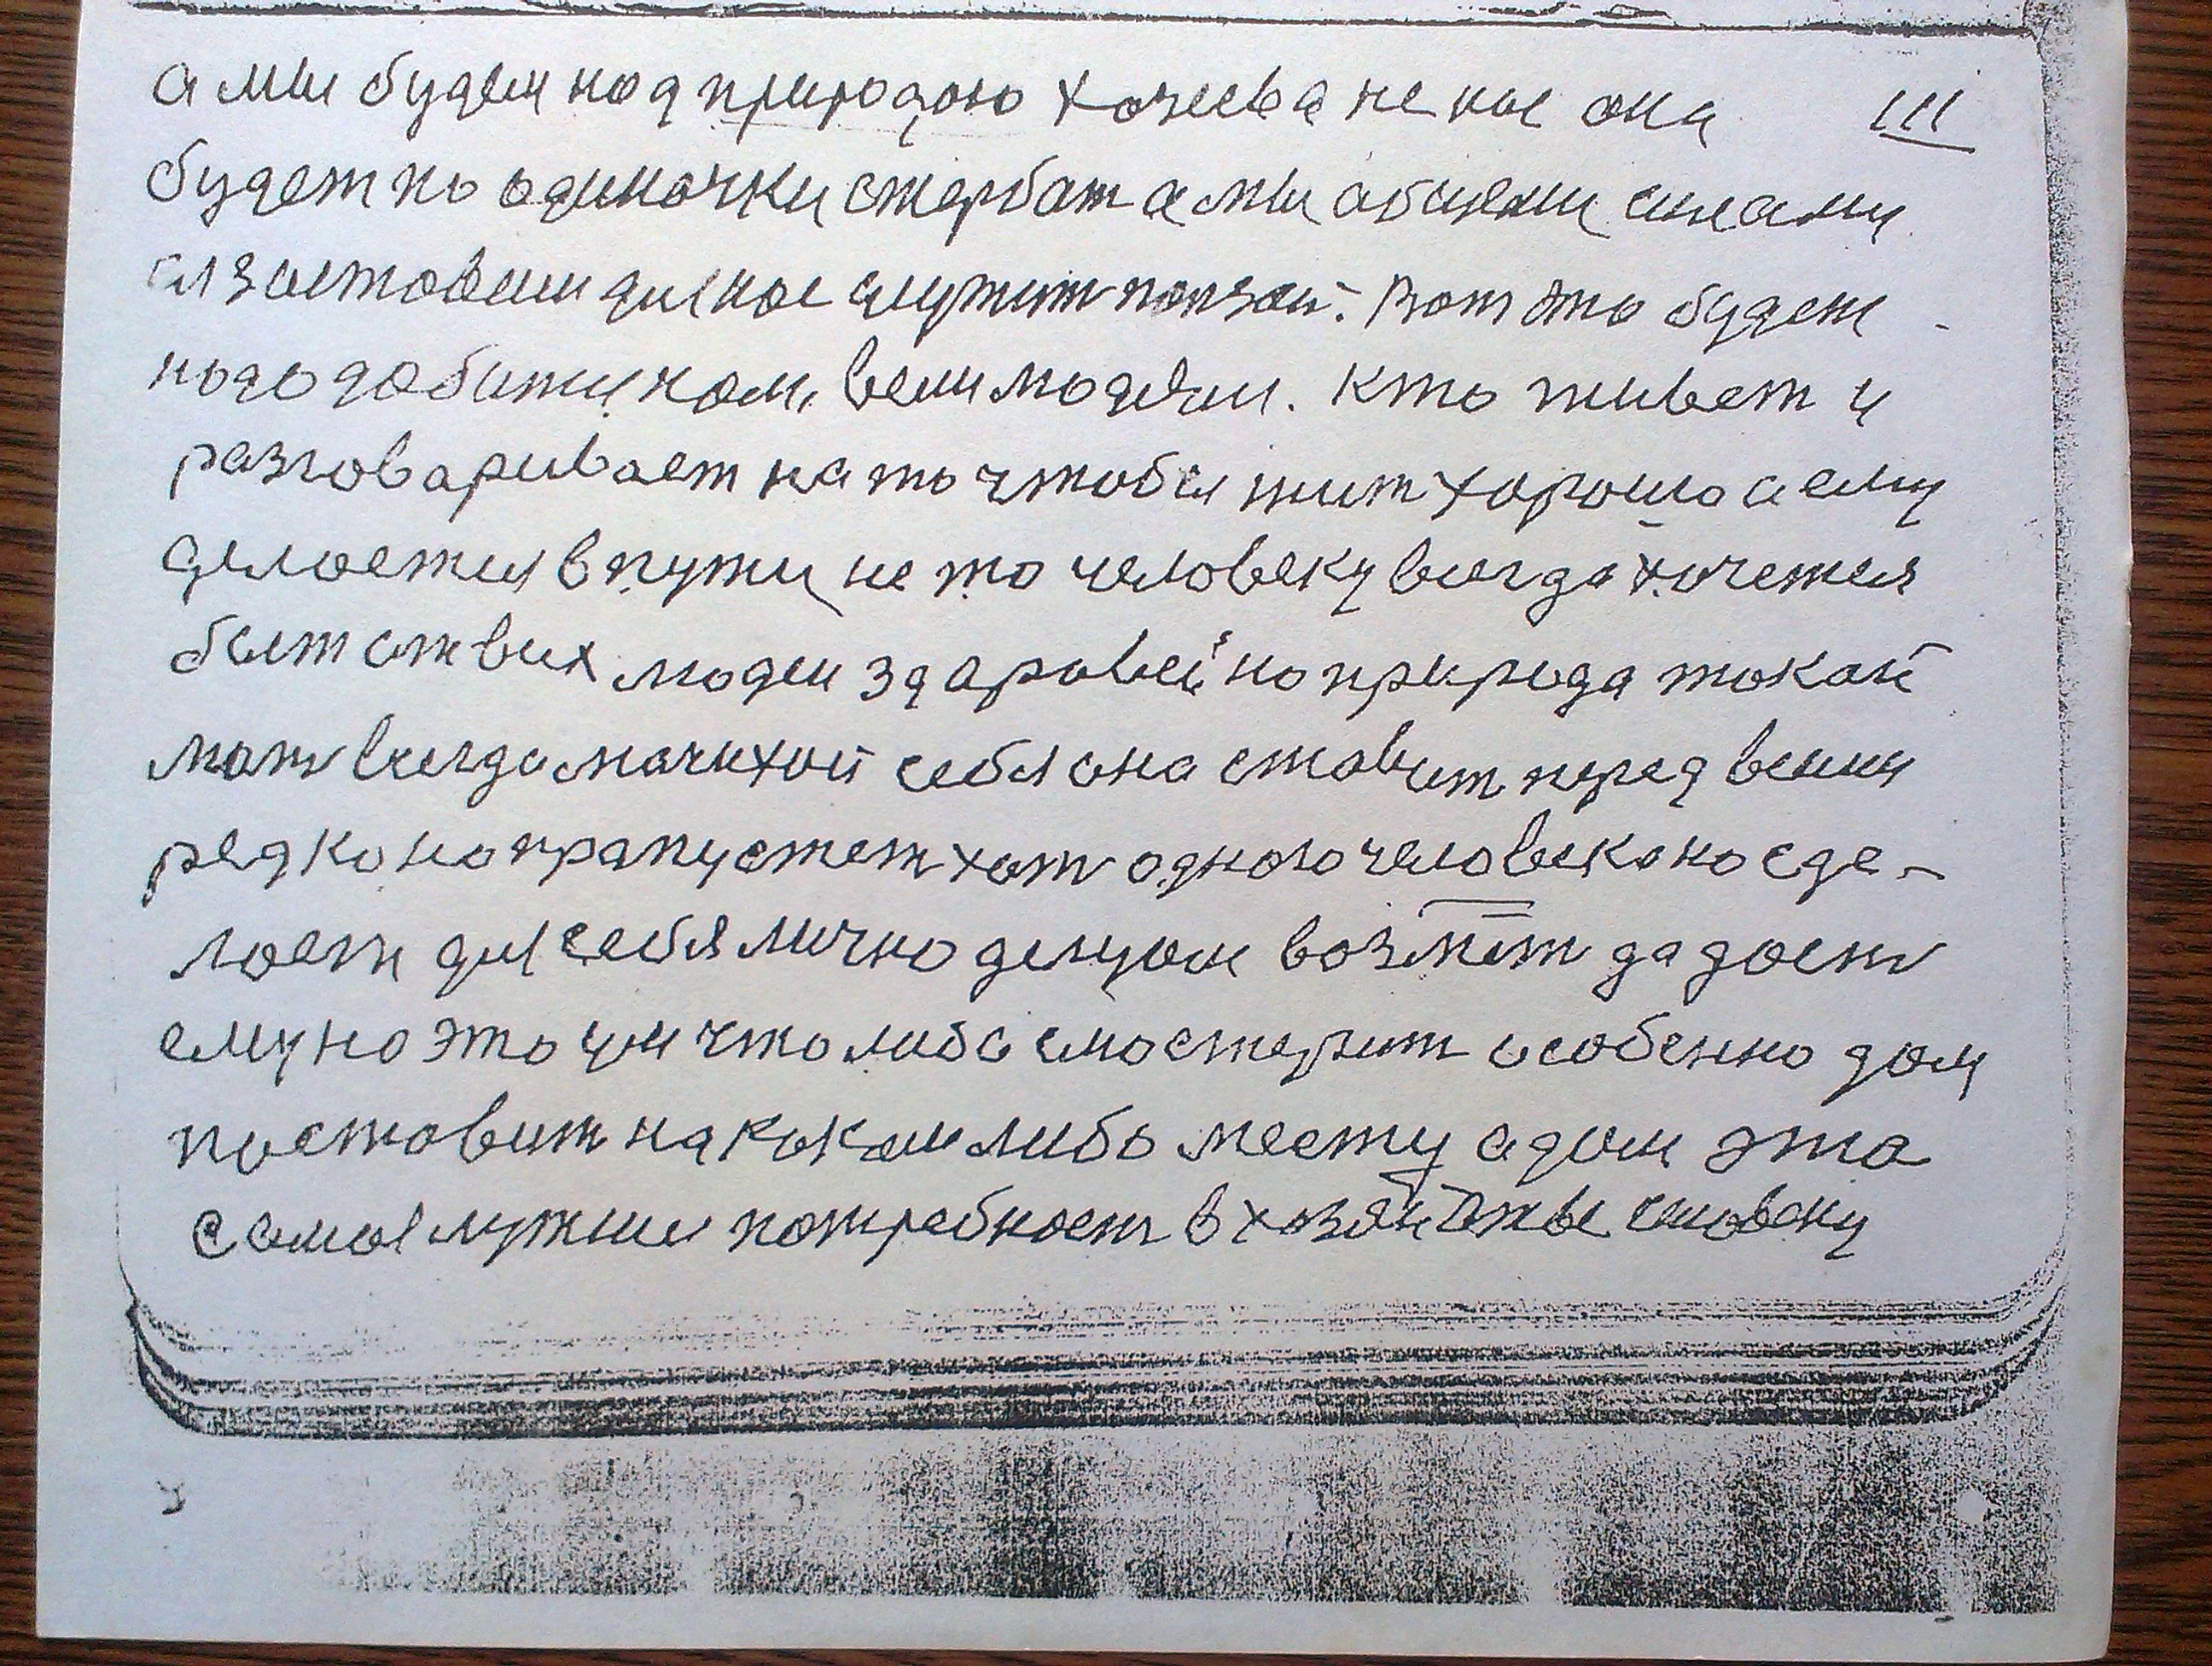 а мы будем над природою хозяева не нас она III
будет по одиночки стербат а мы абчеми силами
ея заставем для нас служит ползай. Вот это будет
надо добится нам всем людям. Кто живет и
разговаривает на то чтобы жит хорошо а ему
делается в пути не то человеку всегда хочется
быт от всех люден здаровей но природа такай
мат всегда мачихой себя она ставит перед всими
редко но прапустет хот одного человека но сде-
лоет для себя лично делцом возмёт да даст
ему но это уш что либо смостерит особенно дом
поставит на каком либо месту а дом эта
самая лутшия потребност в хозяйстве человеку